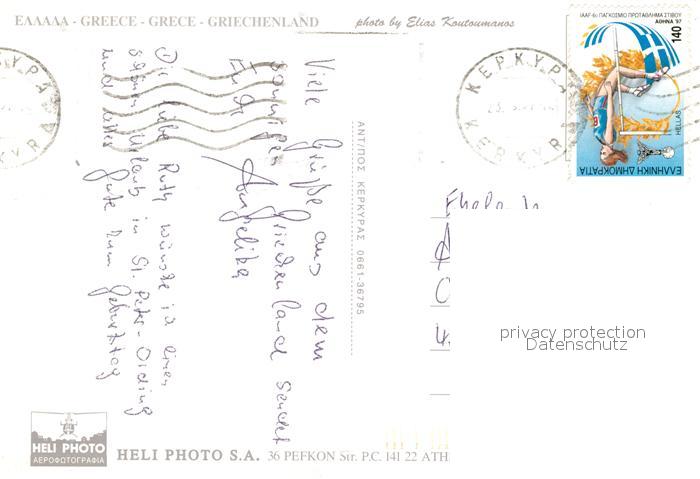 ΕΛΛΑΔΑ - GREECE - GRECE - GRIECHENLAND
photo by Elias Koutoumanos
Viele Grüße aus dem
sonnigen Griechenland sendet
Angelika
Dir liebe Ruth wünsche ich einen
schönen Urlaub in St. Peter-Ording
und alles Gute zum Geburtstag
ΑΝΤ/ΠΟΣ ΚΕΡΚΥΡΑΣ 0661-36795
ΚΕΡΚΥΡΑ
ΚΕΡΚΥΡΑ
IAAF-6ο ΠΑΓΚΟΣΜΙΟ ΠΡΩΤΑΘΛΗΜΑ ΣΤΙΒΟΥ
ΑΘΗΝΑ '97
140
HELLAS
ΕΛΛΗΝΙΚΗ ΔΗΜΟΚΡΑΤΙΑ
privacy protection
Datenschutz
HELI PHOTO
ΑΕΡΟΦΩΤΟΓΡΑΦΙΑ
HELI PHOTO S.A. 36 PEFKON Str. P.C. 141 22 ATH